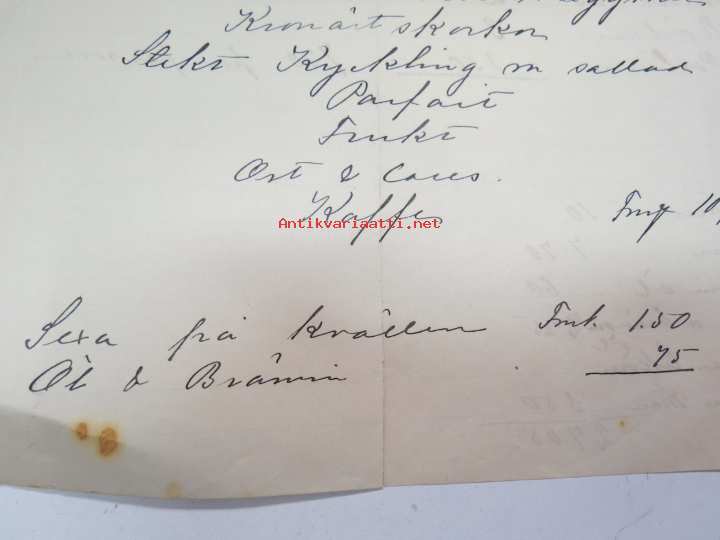 Kronärtskorkor
Stekt Kyckling m sallad
Parfait
Frukt
Ost & Caces.
Kaffe Fmk 10,
Antikvariaatti.net
Sexa på kvällen Fmk. 1.50
Öl & Bränvin 75